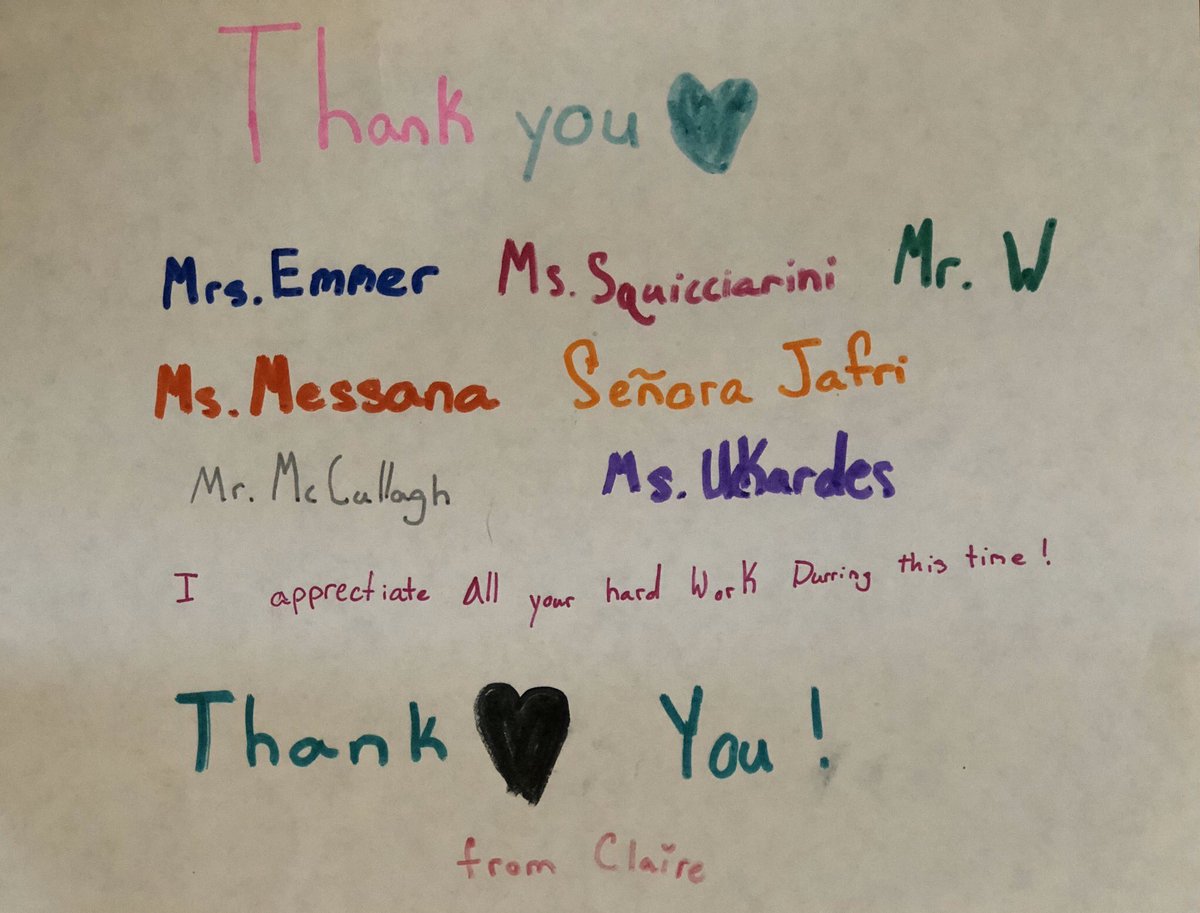 Thank you
Mrs. Emmer Ms. Squicciarini Mr. W
Ms. Messana Señora Jafri
Mr. McCullagh Ms. Ukkardes
I apprectiate all your hard work Durring this time!
Thank You!
from Claire